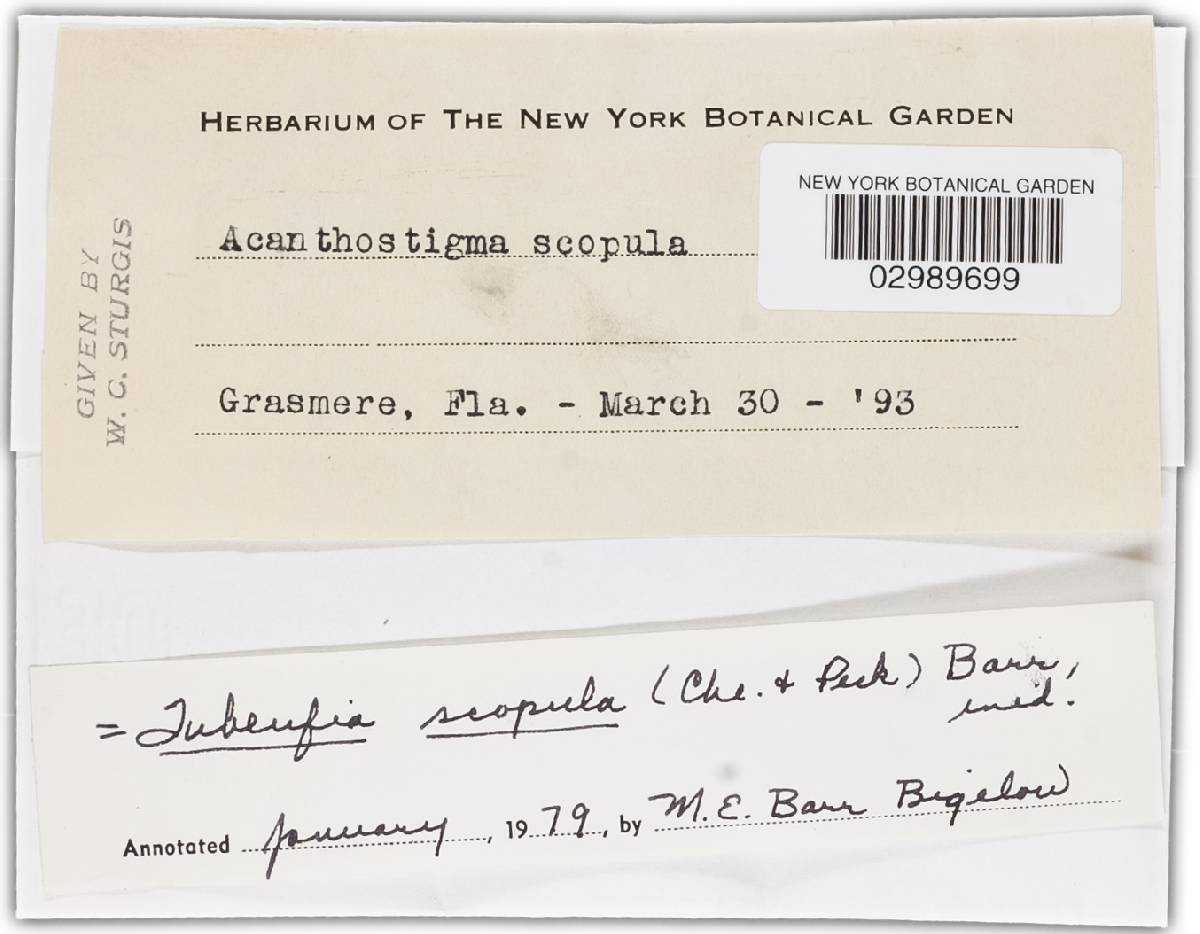 HERBARIUM OF THE NEW YORK BOTANICAL GARDEN
NEW YORK BOTANICAL GARDEN
02989699
Acanthostigma scopula
Grasmere, Fla. - March 30 - '93
GIVEN BY
W. C. STURGIS
= Tubeufia scopula (Cke. & Peck) Barr,
ined.
Annotated January, 1979, by M. E. Barr Bigelow